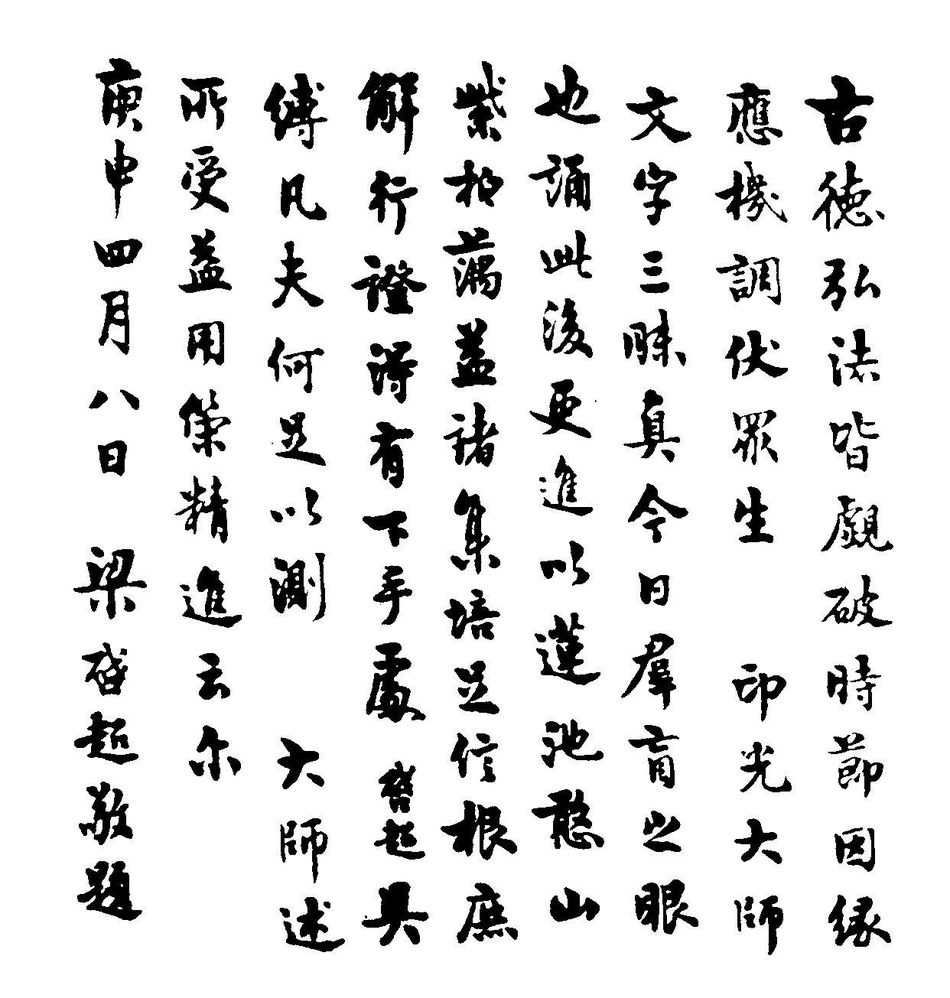 古德弘法皆覷破時節因緣
應機調伏眾生 印光大師
文字三昧真今日羣盲之眼
也誦此後更進以蓮池憨山
紫柏藕益諸集培足信根庶
解行證得有下手處 啓超具
縛凡夫何足以測 大師述
所受益用策精進云尔
庚申四月八日 梁啓超敬題